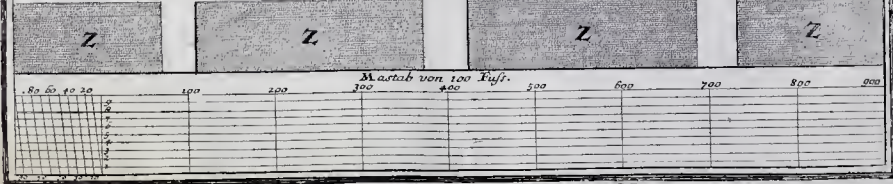 Z Z Z Z
Mastab von 100 Fuß.
80 60 40 20 100 200 300 400 500 600 700 800 900